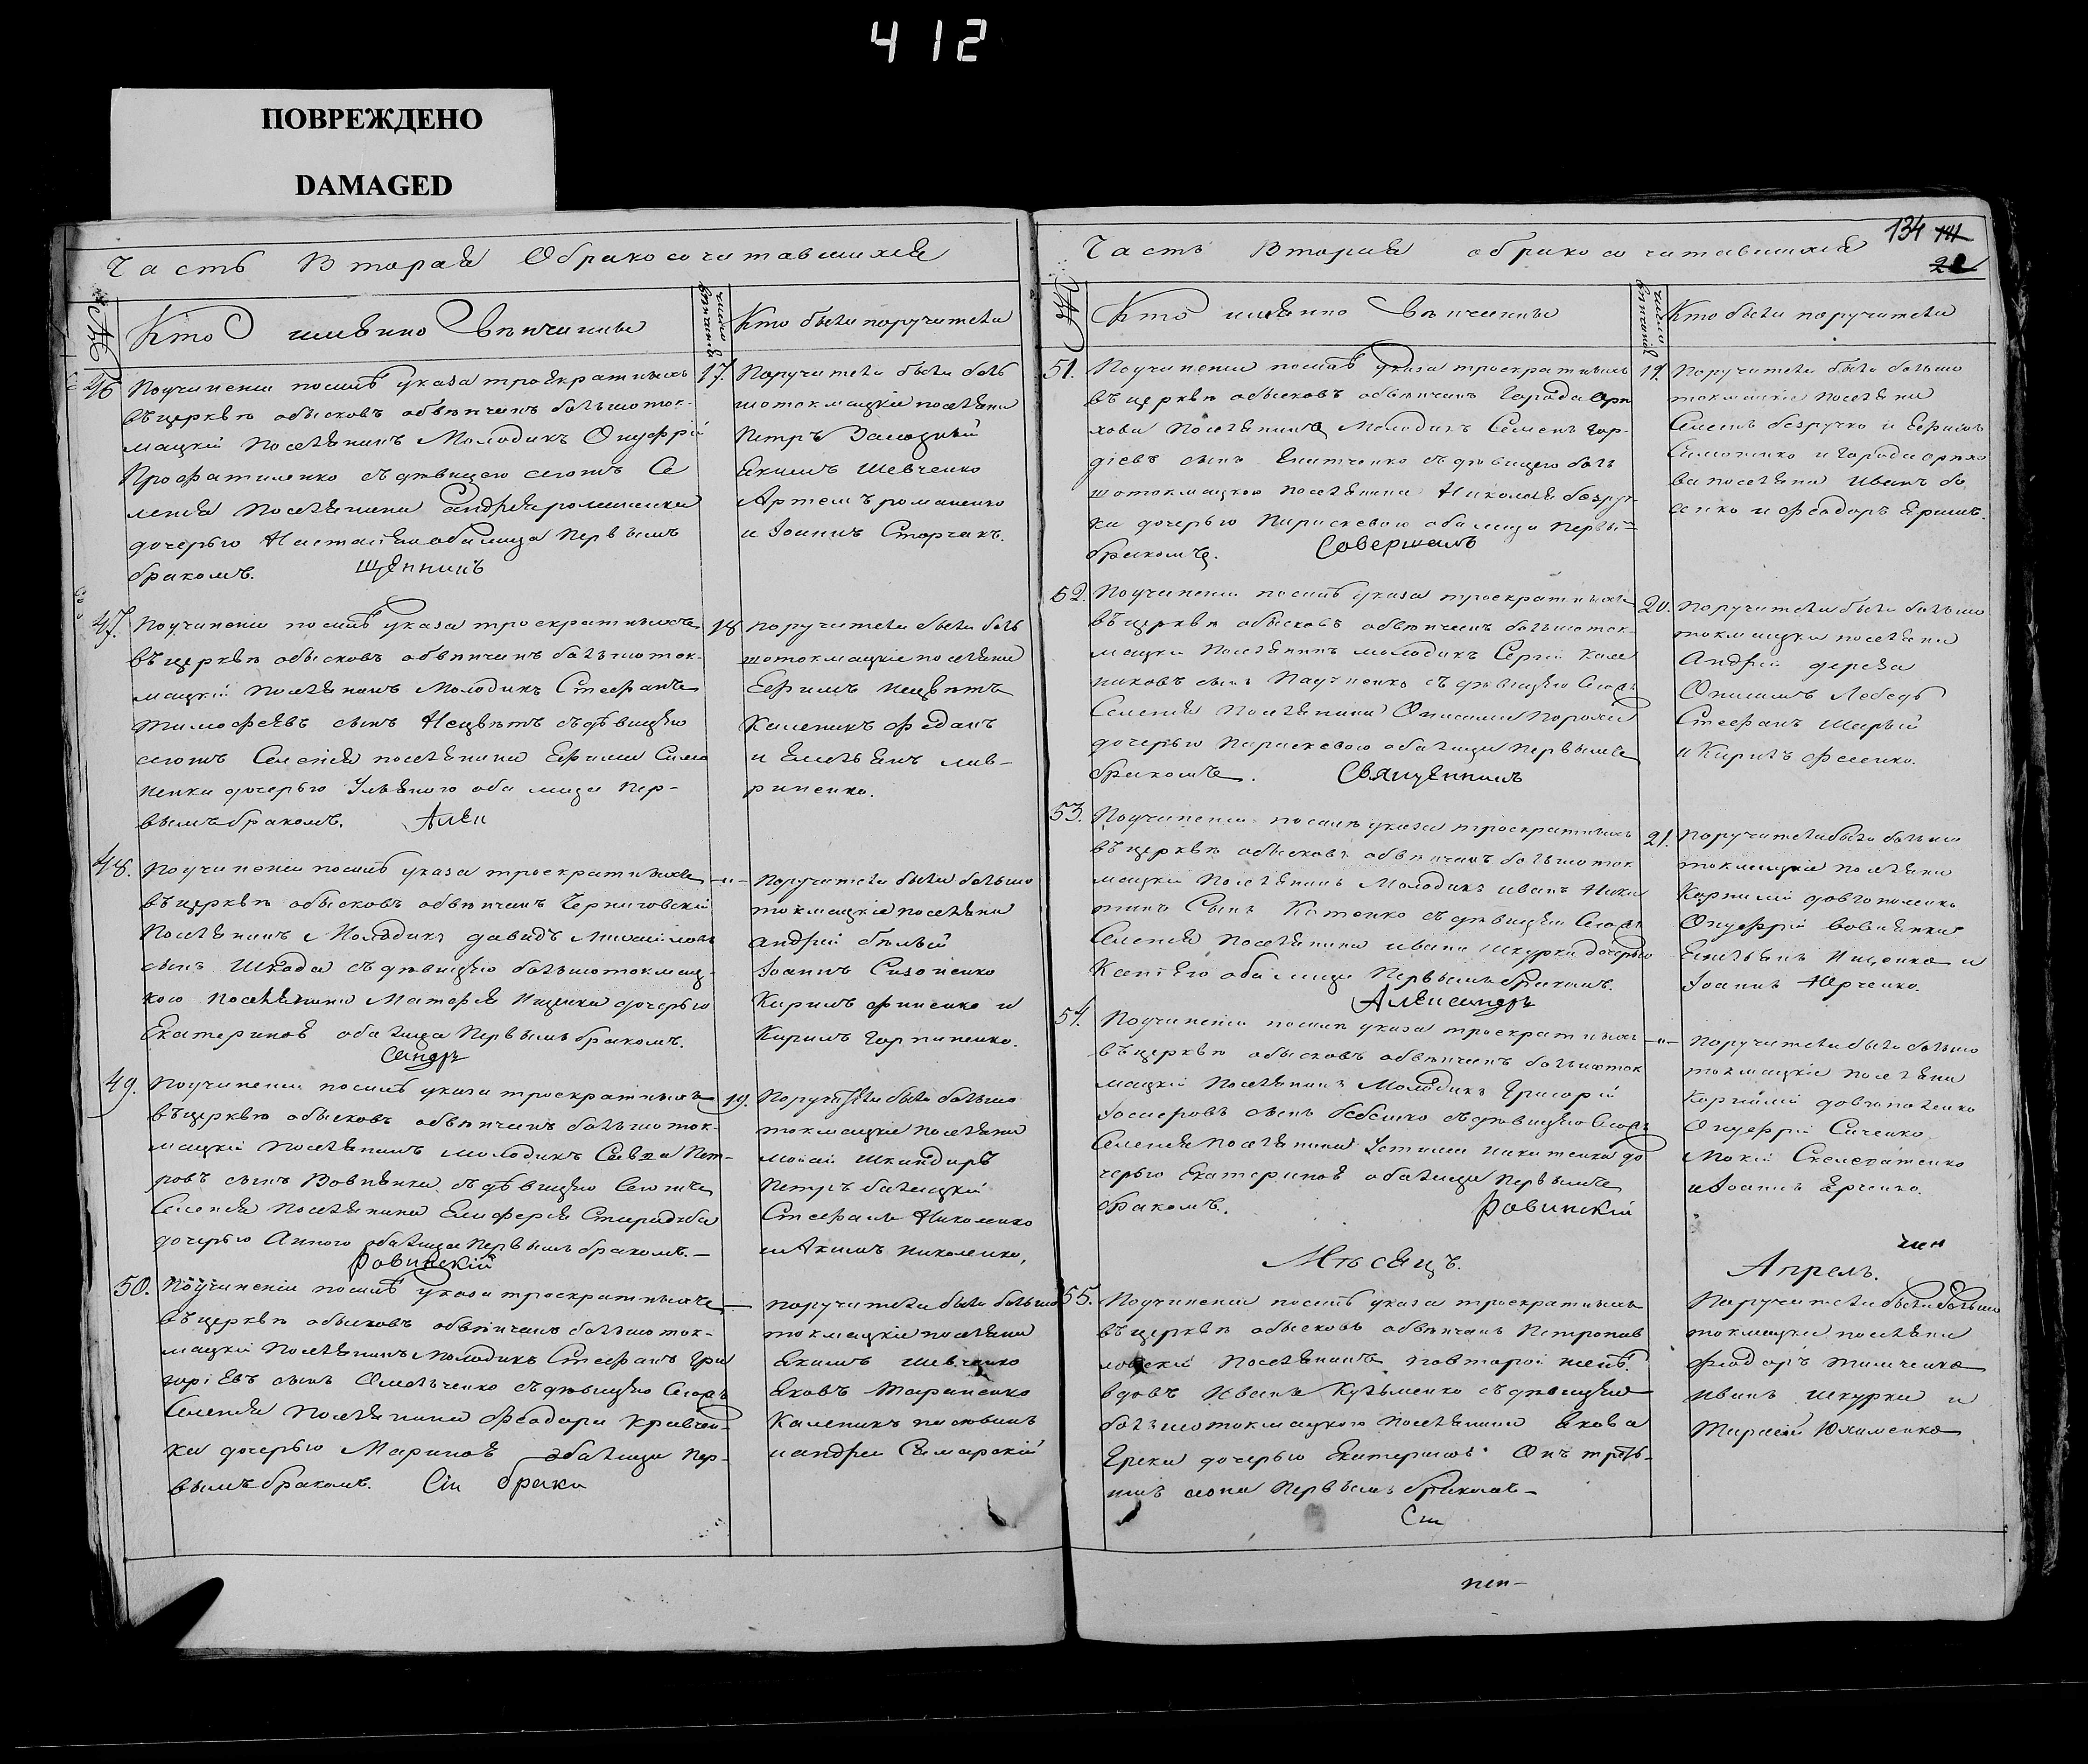 412
ПОВРЕЖДЕНО
DAMAGED
Часть Вторая О бракосочитавшихся
№
Кто именно Венчанны
число венчанія
Кто были поручители
46
Поучиненіи посилѣ указа троекратныхъ
въ церквѣ обысковъ обвѣнчанъ большоток-
мацкій поселянинъ молодикъ Онуфрій
Профатиленко съ дѣвицею сегожъ Се
ленія поселянина андрея
дочерью Настасіею оба лица первымъ
бракомъ. щенникъ
17.
Поручители были боль
шотокмацкіе поселяни
Петръ Зализный
Екимъ Шевченко
Артемъ романенко
и Іоаннъ Сторчакъ.
47.
Поучиненіи посилѣ указа троекратныхъ
въ церквѣ обысковъ обвѣнчанъ большоток-
мацкій поселянинъ молодикъ Стефанъ
Тимофеевъ сынъ Нецвѣтъ съ дѣвицею
сегожъ Селенія поселянина Ефима Симо
ненка дочерью Ульяною оба лица пер-
вымъ бракомъ.Ален
18
поручители были боль
шотокмацкіе поселяни
Ефимъ нецвѣтъ
Каленикъ феданъ
и Емельянъ лав-
риненко.
48.
Поучиненіи посилѣ указа троекратныхъ
въ церквѣ обысковъ обвѣнчанъ Черниговскій
поселянинъ Молодикъ давидъ михайловъ
сынъ Шкода съ дѣвицею большотокмац-
кого поселянина Матфея Ищенка дочерью
Екатериною оба лица первымъ бракомъ.
сандръ
-"-
Поручители были большо
токмацкіе поселяни
андрей бѣлый
Іоаннъ Сизоненко
Кирилъ финенко и
Кирилъ Горпиненко.
49.
Поучиненіи посилѣ указа троекратныхъ
въ церквѣ обысковъ обвѣнчанъ большоток-
мацкій поселянинъ молодикъ Савва Пет-
ровъ сынъ Вовнянка съ дѣвицею Сегожъ
Селенія поселянина Елиферія Стародуба
дочерью Анною оба лица первымъ бракомъ.-
Ровинскій
19.
Поручители были большо
токмацкіе поселяни
моисей Шкиндиръ
Петръ балицкій
Стефанъ Николенко
и Акимъ николенко,
50.
Поучиненіи посилѣ указа троекратныхъ
въ церквѣ обысковъ обвѣнчанъ большоток-
мацкій поселянинъ молодикъ Стефанъ Гри
горіевъ сынъ Омельченко съ дѣвицею Сегожъ
Селенія поселянина Феодора кравчен-
ка дочерью Мариною оба лица пер-
вымъ бракомъ. Сіи браки
—
поручители были большо
токмацкіе поселяни
Екимъ Шевченко
Яковъ Тараненко
Каленикъ
и андрей Самарскій
134
Часть Вторая о бракосочитавшихся
№
Кто именно Венчанны
число венчанія
Кто были поручители
51.
Поучиненіи посилѣ указа троекратныхъ
въ церквѣ обысковъ обвѣнчанъ города Орѣ
хова поселянинъ молодикъ Семенъ Гор-
діевъ сынъ съ дѣвицею боль
шотокмацкого поселянина Николая безруч-
ки дочерью Параскевою оба лица первы-
бракомъ. Совершалъ
19.
Поручители были большо
токмацкіе поселяни
Семенъ безручко и Ефимъ
Симоненко и города орѣхо
ва поселяни Иванъ
и Феодоръ
52.
Поучиненіи посилѣ указа троекратныхъ
въ церквѣ обысковъ обвѣнчанъ большоток-
мацкій поселянинъ молодикъ Сергій Кале
никовъ сынъ съ дѣвицею Сегожъ
Селенія поселянина Онисима
дочерью Параскевою оба лица первымъ
бракомъ. Священникъ
20.
Поручители были большо
токмацкіе поселяни
Андрей дерева
Онисимъ Лебедь
Стефанъ Шарый
и Кирилъ
53.
Поучиненіи посилѣ указа троекратныхъ
въ церквѣ обысковъ обвѣнчанъ большоток
мацкій поселянинъ молодикъ иванъ Ники
тинъ Сынъ Котенко съ дѣвицею Сегожъ
Селенія поселянина ивана шкурки дочерью
Ксеніею оба лица первымъ бракомъ.
Александръ
21.
Поручители были большо
токмацкіе поселяни
Корнилій довгополенко
Онуфрій вовнянка
Емельянъ Ищенко и
Іоаннъ Юрченко.
54.
Поучиненіи посилѣ указа троекратныхъ
въ церквѣ обысковъ обвѣнчанъ большоток
мацкій поселянинъ Молодикъ Григорій
Іосифовъ сынъ бебешко съ дѣвицею Сегожъ
Селенія поселянина Устима никитенка до
черью Екатериною оба лица первымъ
бракомъ. Ровинскій
-"-
Поручители были большо
токмацкіе поселяни
Корнилій довгополенко
Онуфрій Сиченко
Мокій
и Іоаннъ Юрченко.
Мѣсяцъ. Апрель.
55.
Поучиненіи посилѣ указа троекратныхъ
въ церквѣ обысковъ обвѣнчанъ Петропав
ловскій поселянинъ повторой женѣ
вдовъ Иванъ Кузьменко съ дѣвицею
большотокмацкого поселянина Якова
Грека дочерью Екатериною Онъ треть-
имъ аона первымъ бракомъ-
Сіи
Поручители были большо
токмацкіе поселяни
Феодоръ
Иванъ Шкурка и
Тарасій Юхименко